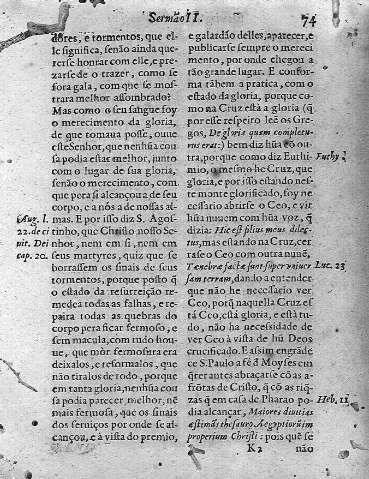 Sermão II.
74
dores, e tormentos, que el-
le significa, senão ainda que-
rerse honrar com elle, e pre-
zarse de o trazer, como se
fora gala, com que se mos-
trara melhor assombrado?
Mas como o seu sangue foy
o merecimento da gloria,
de que tomaua posse, ouue
este Senhor, que nenhũa cou
sa podia estar melhor, junto
com o lugar de sua gloria,
senão o merecimento, com
que pera si alcançou a de seu
corpo, e a nós a de nossas al-
mas. E por isso diz S. Agos-
tinho, que Christo nosso Se-
nhor, nem em si, nem em
seus martyres, quiz que se
borrassem os sinais de seus
tormentos, porque posto q̃
o estado da resurreição re-
medea todas as falhas, e re-
paira todas as quebras do
corpo pera ficar fermoso, e
sem macula, com tudo hou-
ue, que mór fermosura era
deixalos, e reformalos, que
não tiralos de todo, porque
em tanta gloria, nenhũa cou
sa podia parecer melhor, nẽ
mais fermosa, que os sinais
dos serviços por onde se al-
cançou, e à vista do premio,
Aug. l.
22. de ci
uit. Dei
cap. 20.
e galardão delles, aparecer, e
publicarse sempre o mereci
mento, por onde chegou a
tão grande lugar. E confor-
ma tãbem a pratica, com o
estado da gloria, porque co-
mo na Cruz està a gloria (q̃
por esse respeito leẽ os Gre-
gos, De gloria quam completu-
rus erat:) bem diz hũa cõ ou
tra, porque como diz Euthi-
mio, o mesmo he Cruz, que
gloria, e por isso estando nes-
te monte glorificado, foy ne
cessario abrirse o Ceo, e vir
hũa nuuem com hũa voz, q̃
dizia: Hic est filius meus dilec-
tus, mas estando na Cruz, cer
rase o Ceo com outra nuuẽ,
Tenebræ factæ sunt super vniuer
sam terram, dando a entender
que não he necessario ver
Ceo, porq̃ naquella Cruz es
tá Ceo, està gloria, e està tu-
do, não ha necessidade de
ver Ceo à vista de hũ Deos
crucificado. E assim engrãde
ce S. Paulo a fé d Moyses em
q̃rer antes abraçarse cõ as a-
frõtas de Cristo, q̃ cõ as riq̃-
zas q̃ em casa de Pharao po-
dia alcançar, Maiores diuitias
æstimãs thesauro Aegyptiorũm
improperium Christi: pois quẽ se
Euthy
Luc. 23
Heb. 11
K 2
não